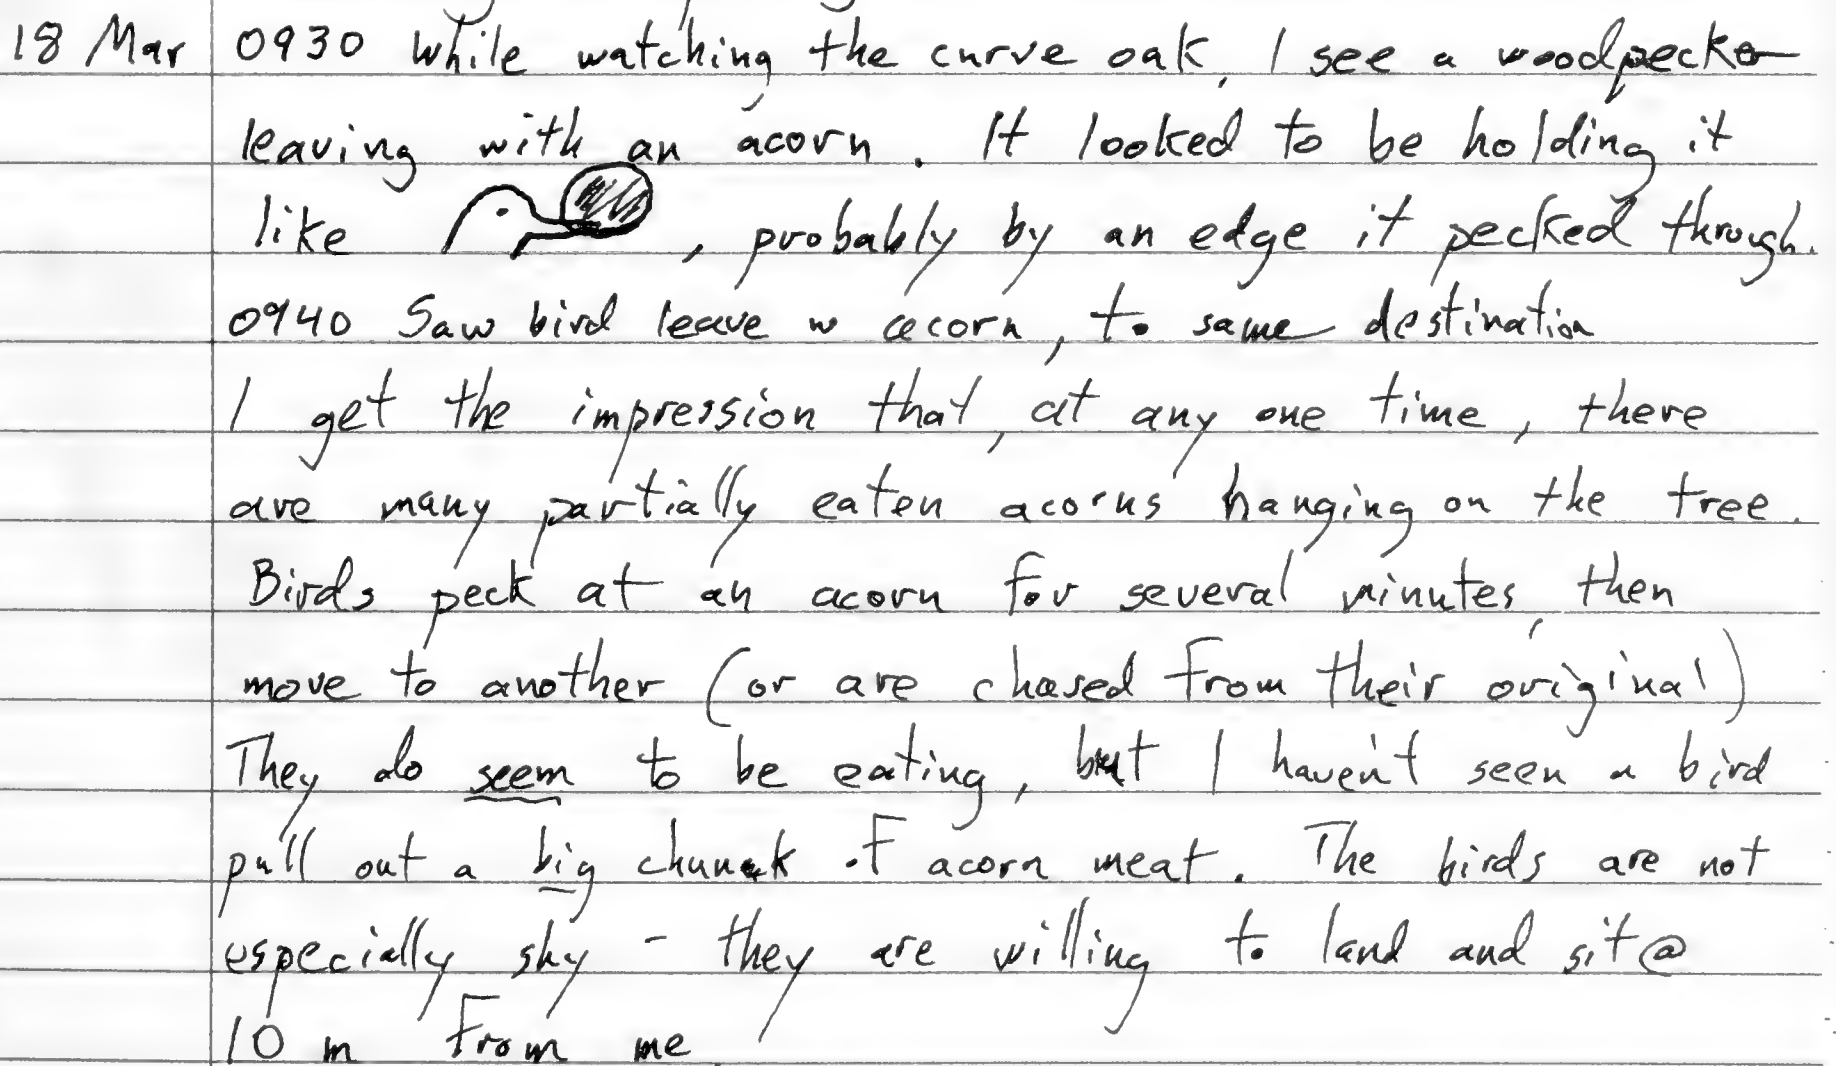 18 Mar 0930 While watching the curve oak, I see a woodpecker
leaving with an acorn. It looked to be holding it
like , probably by an edge it pecked through.
0940 Saw bird leave w acorn, to same destination
I get the impression that, at any one time, there
are many partially eaten acorns hanging on the tree.
Birds peck at an acorn for several minutes, then
move to another (or are chased from their original)
They do seem to be eating, but I haven't seen a bird
pull out a big chunk of acorn meat. The birds are not
especially shy - they are willing to land and sit @
10 m from me